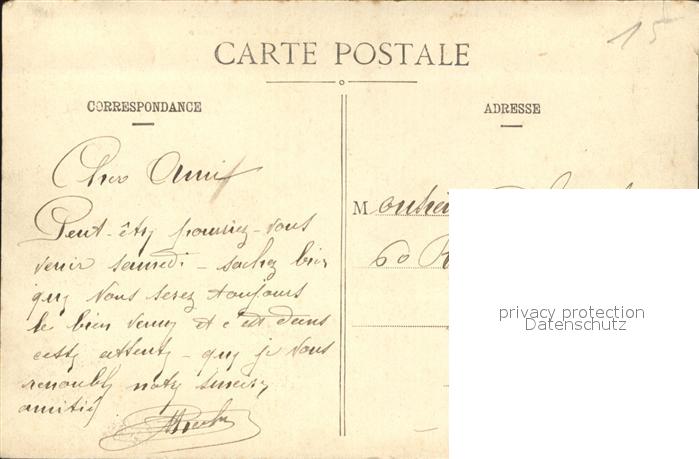 15
CARTE POSTALE
CORRESPONDANCE
ADRESSE
Cher Ami
Peut-être pourriez-vous
venir samedi - sachez bien
que vous serez toujours
le bien venu et c'est dans
cette attente - que je vous
renouvelle notre sincère
amitié
M
60 R
privacy protection
Datenschutz